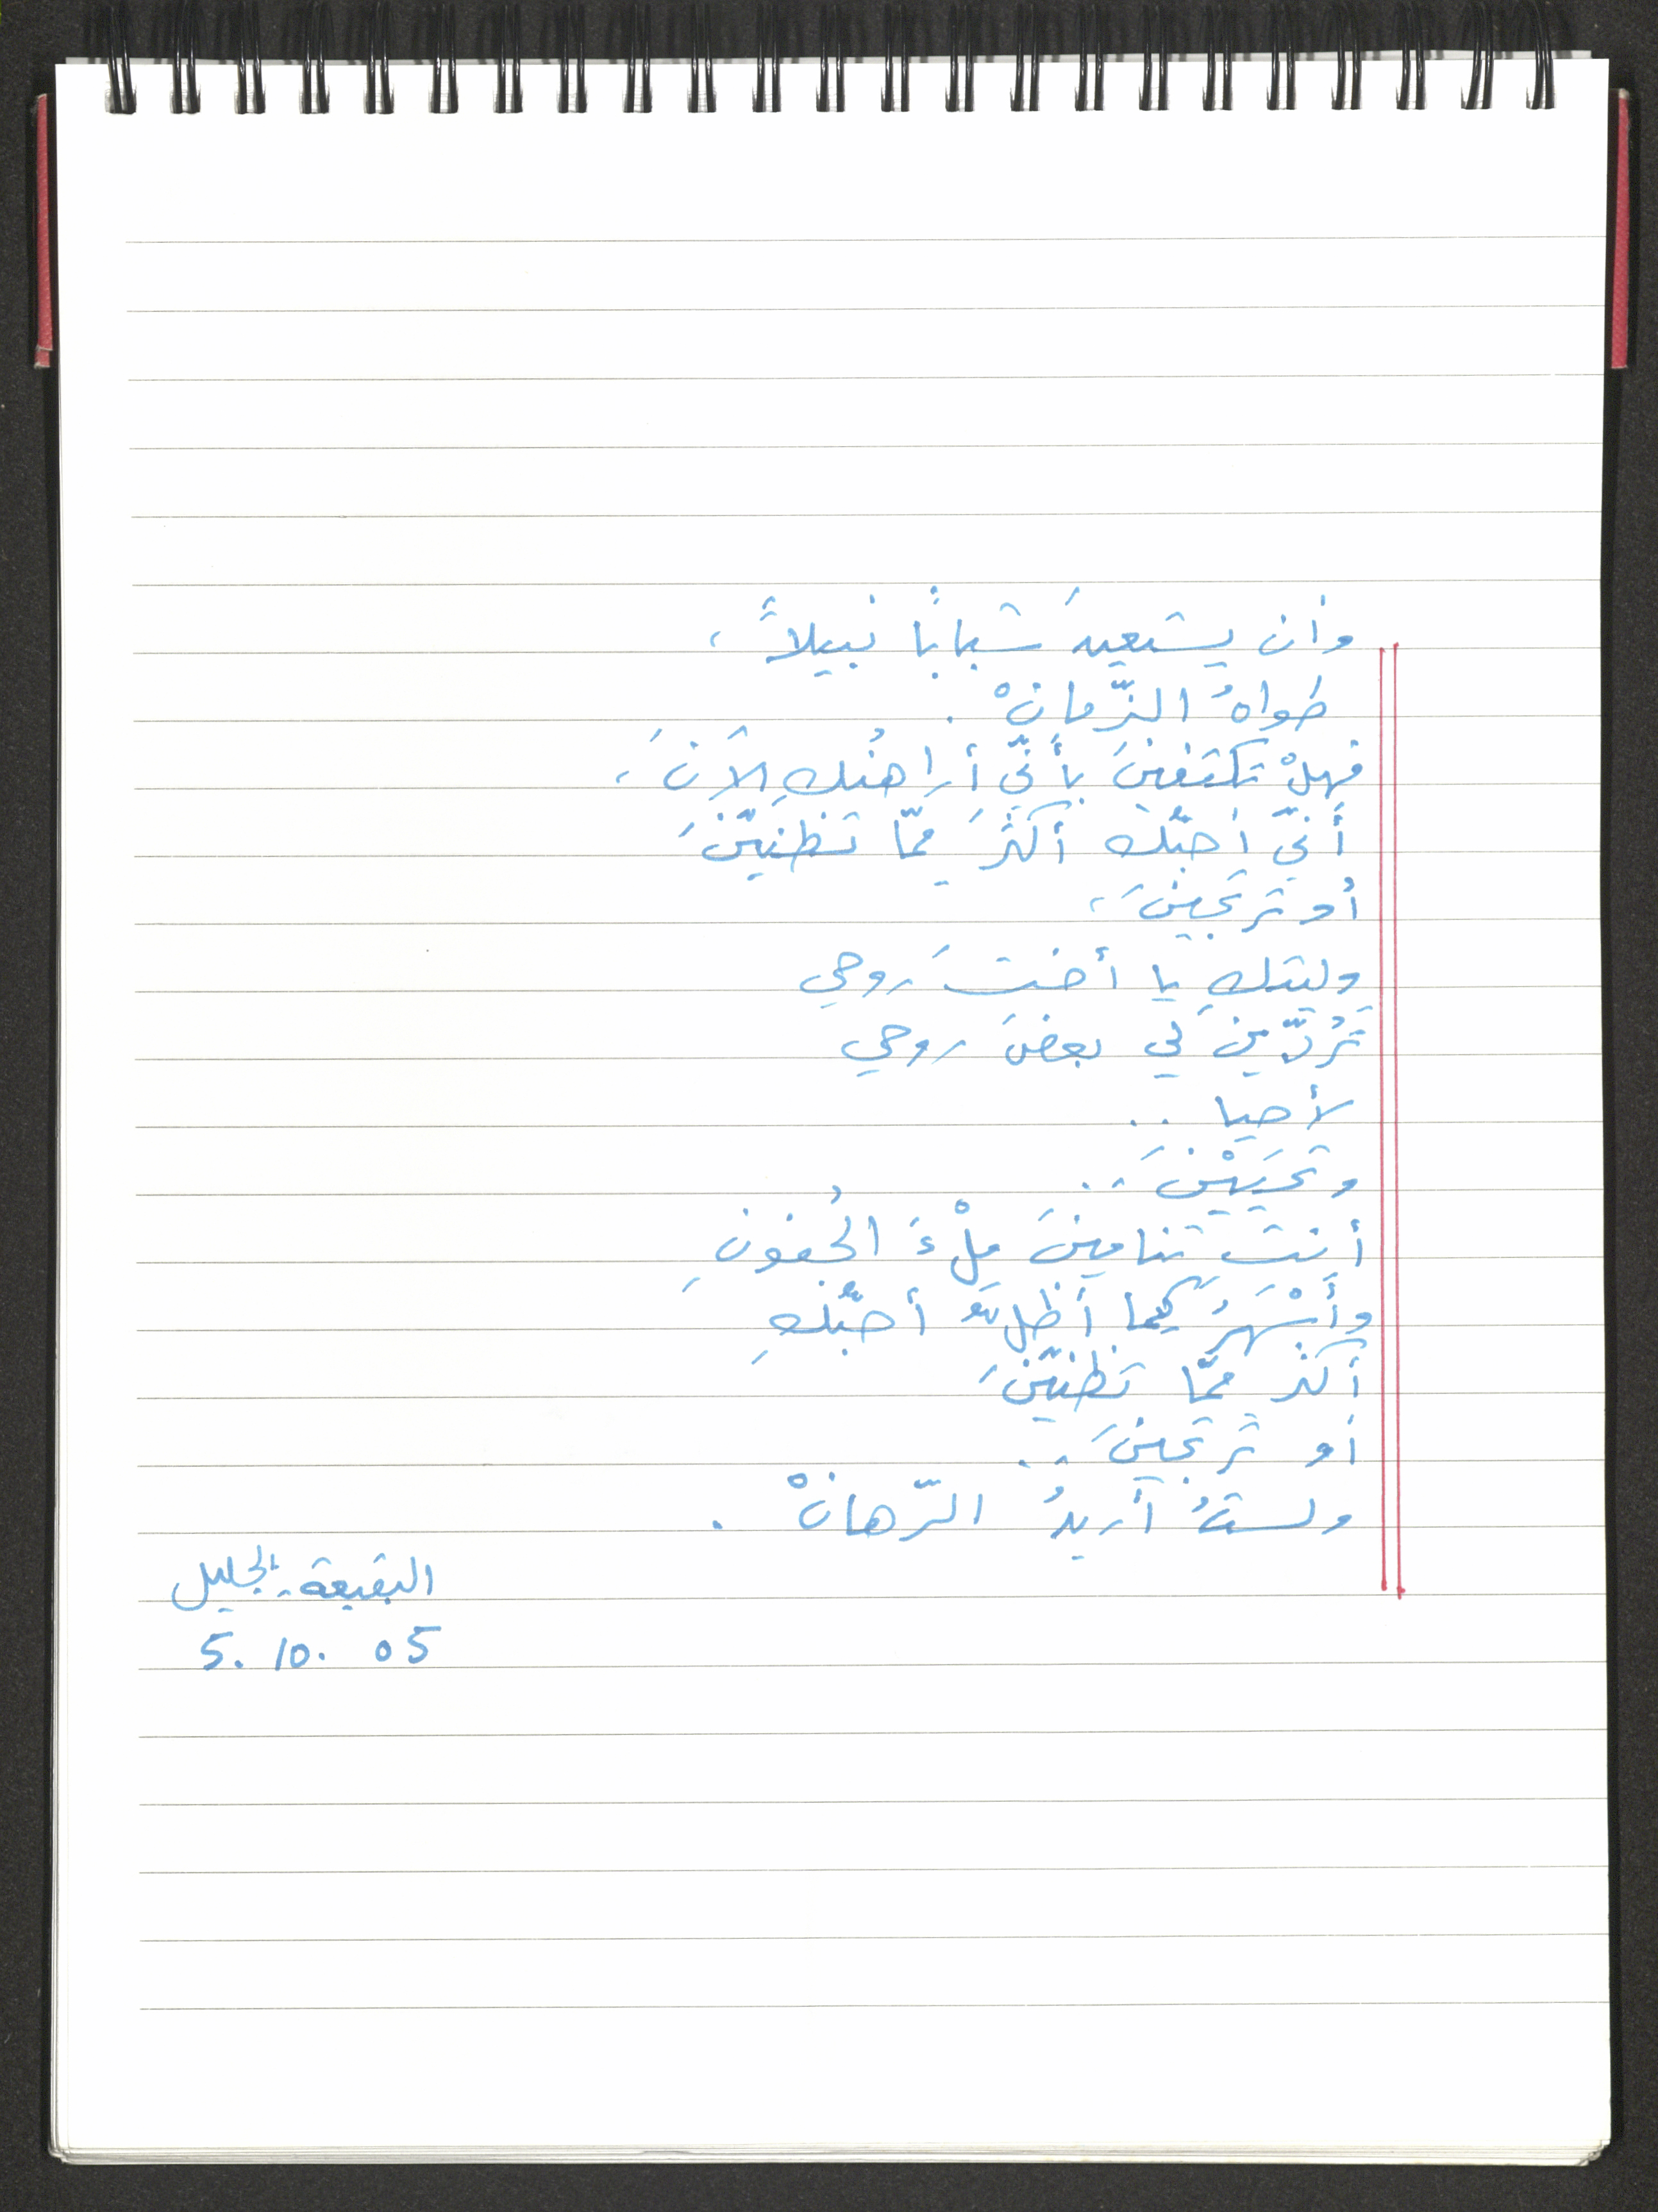 وأن يستعيدَ شبابًا نبيلاً،
طواهُ الزّمانْ.
فهلْ تكتفينَ بأنّي أُراهنُكِ الآنَ،
أنّي أحبُّكِ أكثرَ ممّا تظنّينَ
أو ترتجينَ،
وليتكِ يا أختَ روحي
تَرُدّينَ لي بعضَ روحي
لأحيا ..
وتحيَيْنَ ..
أنتِ تنامينَ مِلْءَ الجُفونِ
وأَسْهَرُ كيما أظلَّ أحبُّكِ
أكثر ممّا تظنّينَ
أو ترتجينَ ..
ولستُ أريدُ الرّهانْ .
البقيعة - الجليل
5. 10. 05